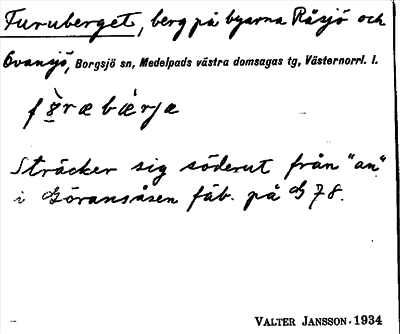 Furuberget, berg på byarna Råsjö och
Ovansjö, Borgsjö sn, Medelpads västra domsagas tg, Västernorrl. l.
Sträcker sig söderut från "an"
i Göransåsen fäb. på G 78.
VALTER JANSSON. 1934